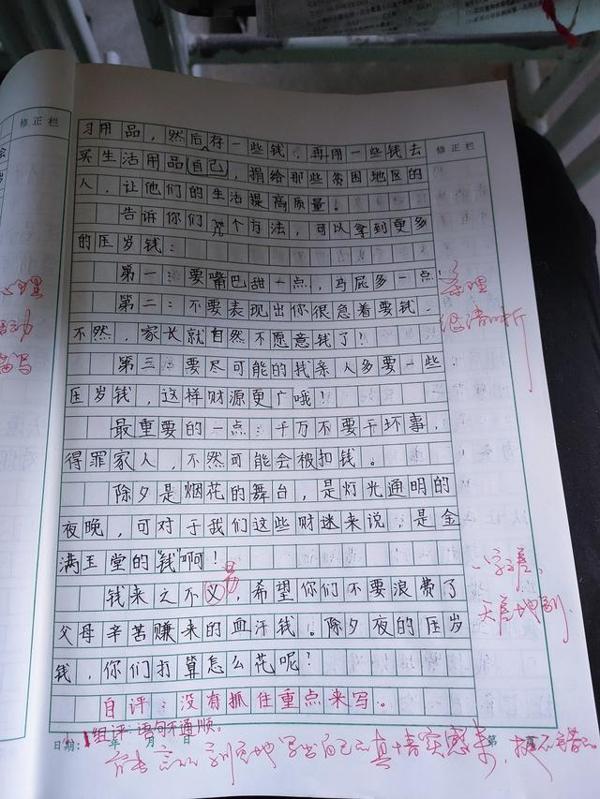 修正栏
习用品，然后存一些钱，再用一些钱去
买生活用品自己，捐给那些贫困地区的
人，让他们的生活提高质量。
告诉你们几个方法，可以拿到更多
的压岁钱：
第一：要嘴巴甜一点，马屁多一点！
第二：不要表现出你很急着要钱，
不然，家长就自然不愿意钱了！
条理
很清晰
第三：要尽可能的找亲人多要一些
压岁钱，这样财源更广哦！
最重要的一点：千万不要干坏事，
得罪家人，不然可能会被扣钱。
除夕是烟花的舞台，是灯光通明的
夜晚，可对于我们这些财迷来说，是金
满玉堂的“钱”啊！
钱来之不义，希望你们不要浪费了
易
一字之差，
天差地别
父母辛苦赚来的血汗钱。除夕夜的压岁
钱，你们打算怎么花呢？
自评：没有抓住重点来写。
组评：语句不通顺。
日期： 年 月 日
第
修正栏
心理
动
描写